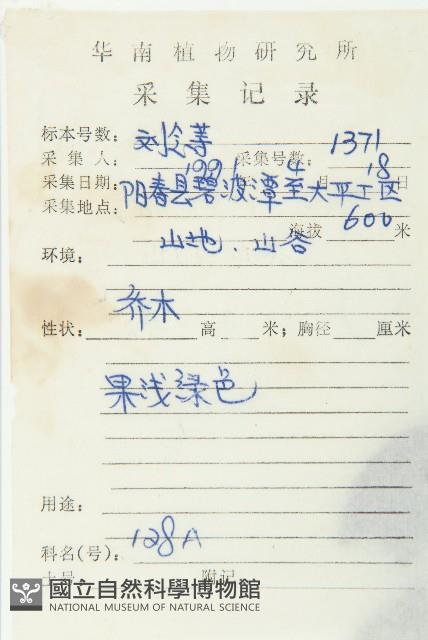 华南植物研究所
采集记录
标本号数:
采集人: 刘念等 采集号数: 1371
采集日期: 1991 年 4 月 18 日
采集地点: 阳春县碧波潭至太平工区
海拔 600 米
环境: 山地、山谷
性状: 乔木 高 米; 胸径 厘米
果浅绿色
用途:
科名(号): 128A
附记
國立自然科學博物館
NATIONAL MUSEUM OF NATURAL SCIENCE